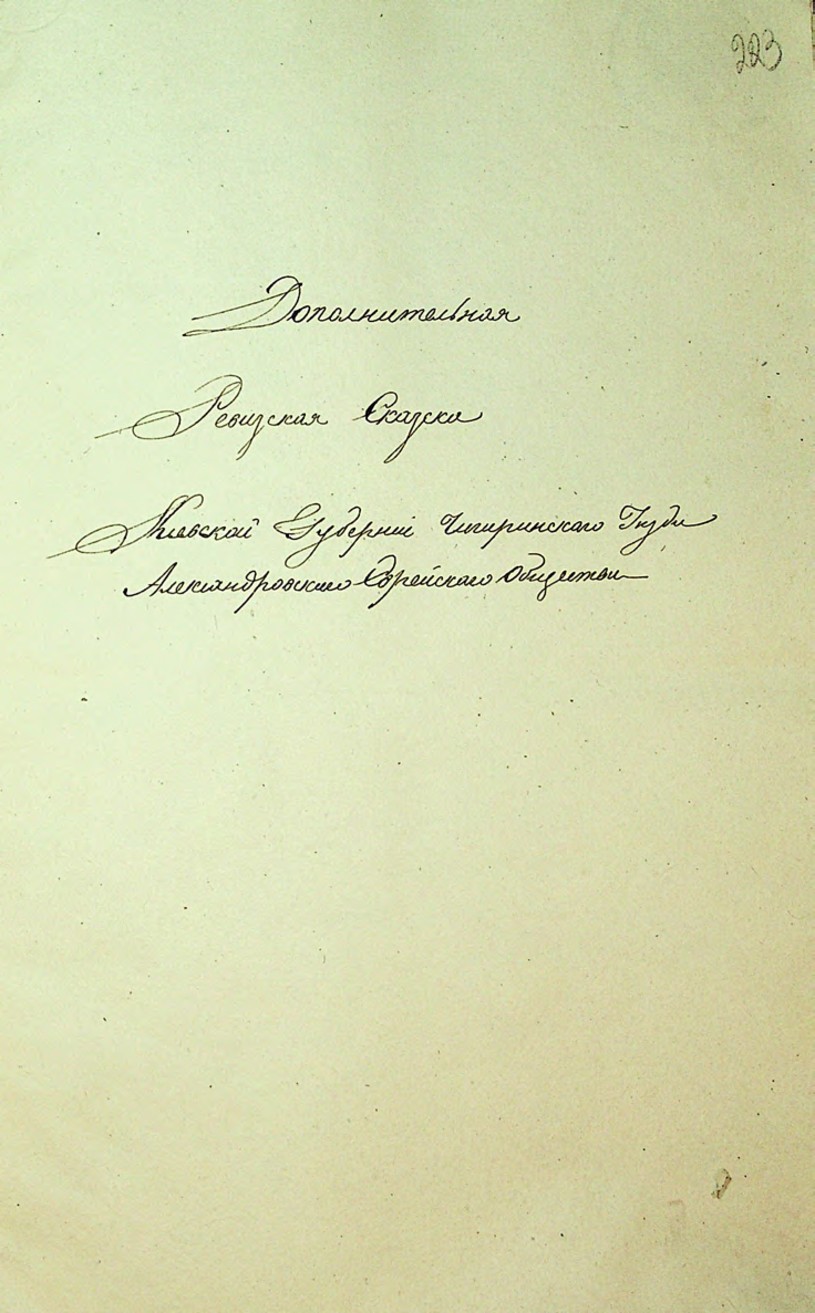 223
Дополнительная
Ревизская Сказка
Киевской Губерніи Чигиринского Уезда
Александровского Еврейского Общества